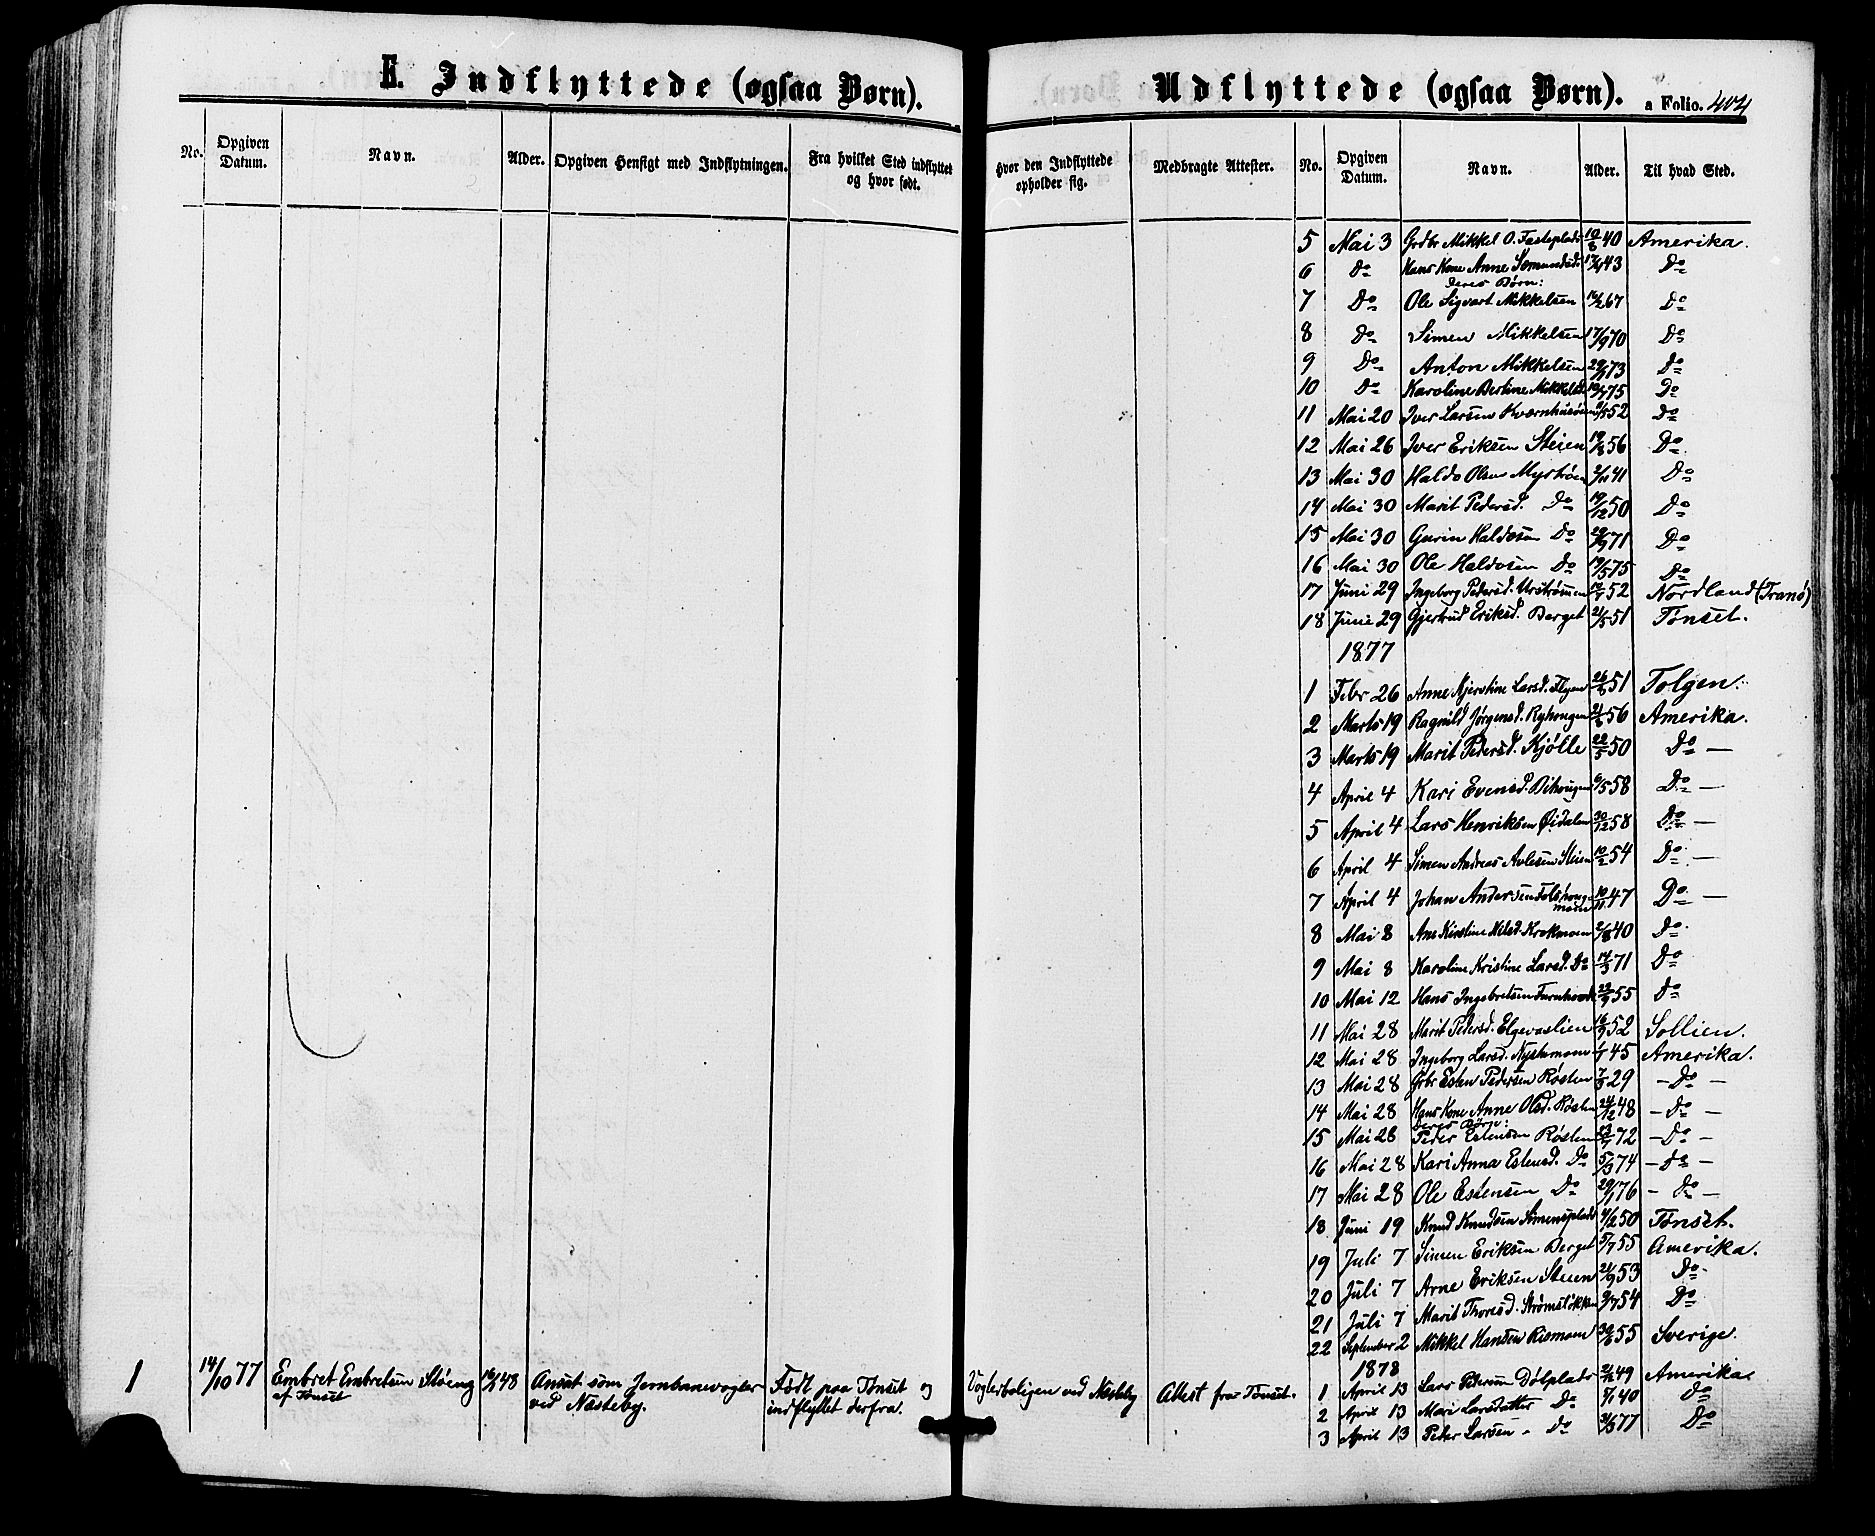 E. Indflyttede (ogsaa Børn).
No. Opgiven Datum. Navn. Alder. Opgiven Hensigt med Indflytningen. Fra hvilket Sted indflyttet og hvor født.
1 14/10 77 Embret Embretsen Støeng 48 Ansat som Jernbanevogter Født paa Tønset og
af Tønset ved Næsteby. indflyttet derfra.
Udflyttede (ogsaa Børn). a Folio. 404
Hvor den Indflyttede opholder sig. Medbragte Attester. No. Opgiven Datum. Navn. Alder. Til hvad Sted.
5 Mai 3 Grdbr Mikkel O. Fasteplads 19/8 40 Amerika.
6 Do Hans Kone Anne Somundsd. 43 Do
deres Børn:
7 Do Ole Sigvart Mikkelsen 16/2 67 Do
8 Do Simen Mikkelsen 17/9 70 Do
9 Do Anton Mikkelsen 73 Do
10 Do Karoline Bertine Mikkelsd 75 Do
11 Mai 20 Iver Larsen 52 Do
12 Mai 26 Iver Eriksen Steien 19/8 56 Do
13 Mai 30 Haldo Olsen Myrmoen 2/11 41 Do
14 Mai 30 Marit Pedersd. Do 19/12 50 Do
15 Mai 30 Gurin Haldosen Do 29/9 71 Do
16 Mai 30 Ole Haldosen Do 19/5 75 Do
17 Juni 29 Ingeborg Pedersd. Urstrømen 52 Nordland (Tranø)
18 Juni 29 Gjertrud Eriksd. Berget 21/5 51 Tønset.
1877
1 Febr 26 Anne Kjerstine Larsd. Flyen 51 Tolgen.
2 Marts 19 Ragnild Jørgensd. Ryhougen 56 Amerika.
3 Marts 19 Marit Pedersd. Kjølle 22/5 50 Do —
4 April 4 Kari Evensd. 6/5 58 Do —
5 April 4 Lars Henriksen Øidalen 30/12 58 Do —
6 April 4 Simen Andreas Steien 10/2 54 Do —
7 April 4 Johan Andersen 10/11 47 Do —
8 Mai 8 Ane Kirstine Nilsd. Krokmoen 2/8 40 Do
9 Mai 8 Karoline Kristine Larsd. Do 14/3 71 Do
10 Mai 12 Hans Ingebretsen 23/9 55 Do
11 Mai 28 Marit Pedersd. Elgevaslien 16/9 52 Sollien.
12 Mai 28 Ingeborg Larsd. Nystumoen 1/7 45 Amerika.
13 Mai 28 Grbr Esten Pedersen Røsten 7/3 29 — Do —
14 Mai 28 Hans Kone Anne Olsd. Røsten 24/12 48 — Do —
deres Børn:
15 Mai 28 Peder Estensen Røsten 72 — Do —
16 Mai 28 Kari Anna Estensd. Do 5/3 74 — Do —
17 Mai 28 Ole Estensen Do 29/1 76 — Do —
18 Juni 19 Knud Knudsen Simensplads 4/2 50 Tønset.
19 Juli 7 Simen Eriksen Berget 5/7 55 Amerika.
20 Juli 7 Arne Eriksen Steien 21/9 53 Do
21 Juli 7 Marit Thoresd. Strømsløkken 9/7 54 Do
22 September 2 Mikkel Hansen Riomoen 55 Sverige.
1878
Vogterboligen ved Næsteby Attest fra Tønset. 1 April 13 Lars Pedersen Dølplads 49 Amerika
2 April 13 Mari Larsdatter Do 40 Do
3 April 13 Peder Larsen - Do 77 Do